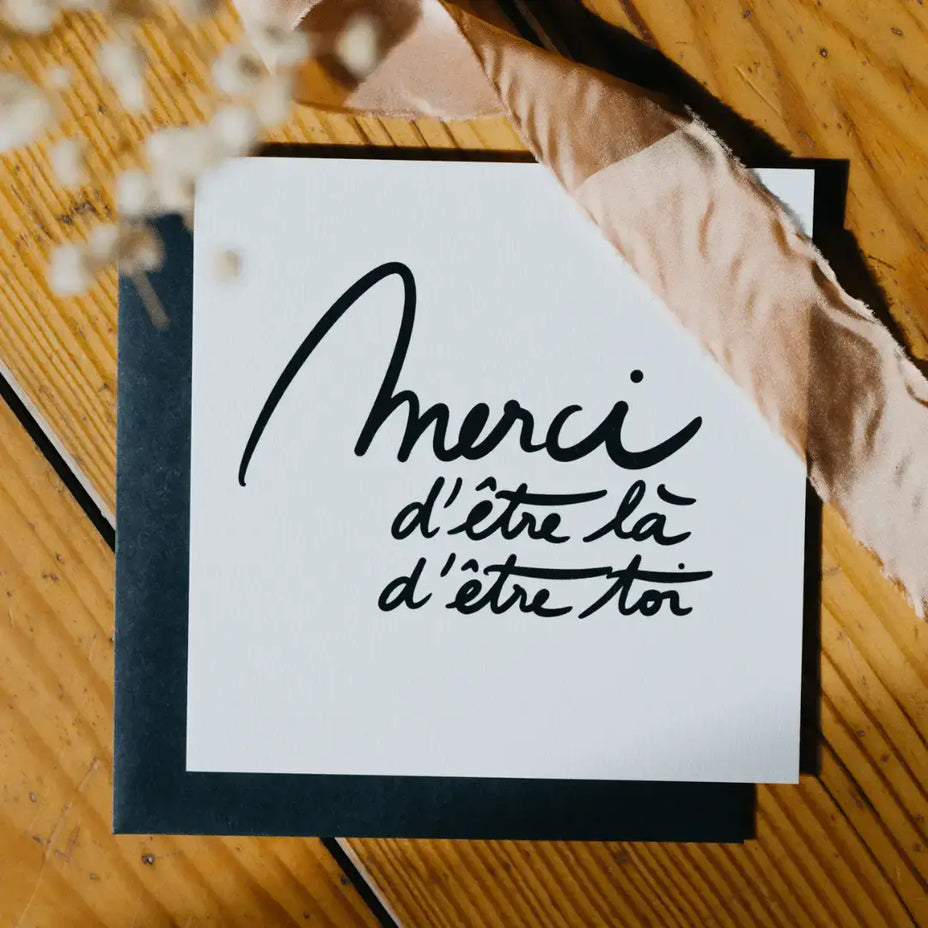 Merci
d'être là
d'être toi